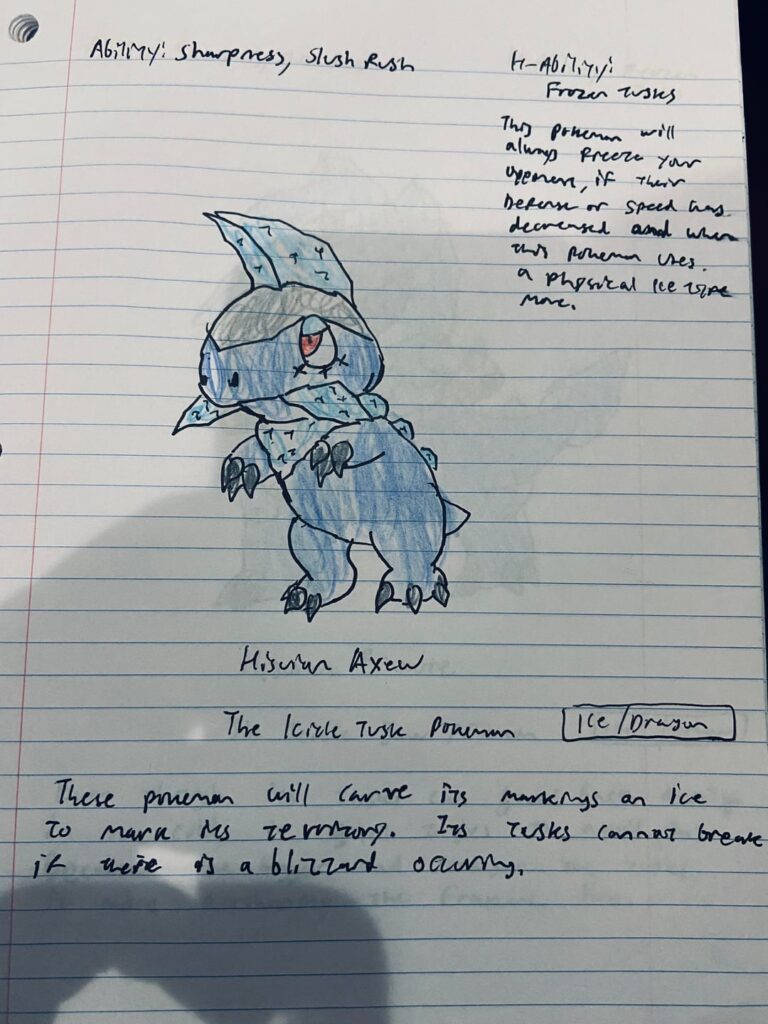 Ability: Sharpness, Slush Rush
H-Ability:
Frozen Tusks
This pokemon will
always freeze your
opponent, if their
Defense or speed has
decreased and when
this pokemon uses
a physical Ice type
move.
Hisuian Axew
The Icicle Tusk Pokemon
Ice/Dragon
These pokemon will carve its markings on ice
to mark its territory. Its tusks cannot break
if there is a blizzard occuring.